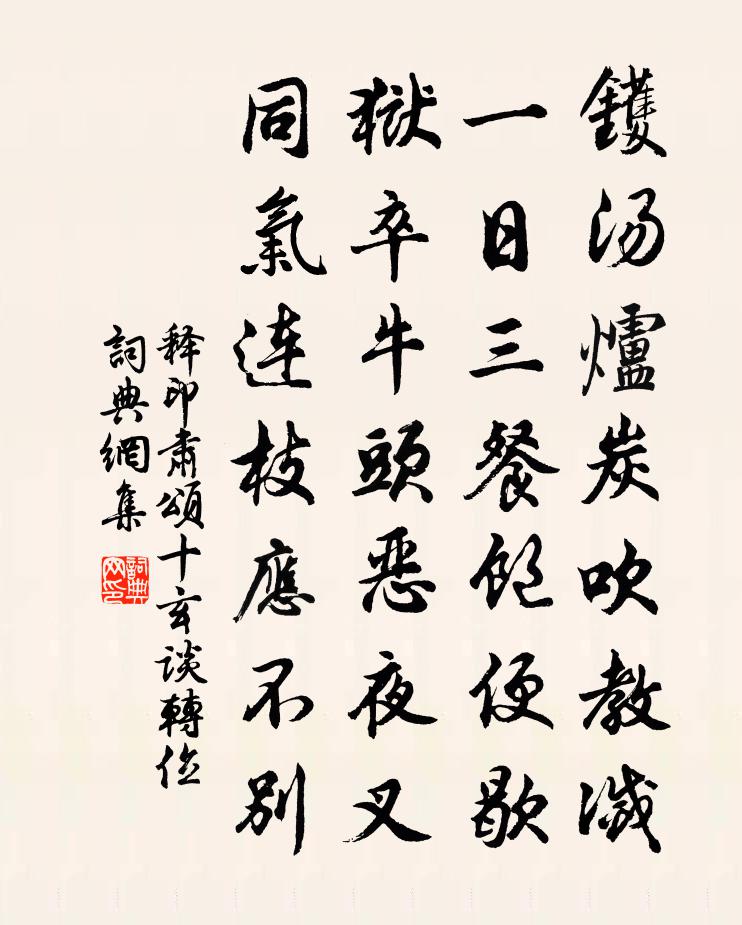 鑊汤爐炭吹教滅
一日三餐飽便歇
獄卒牛頭恶夜叉
同氣連枝應不别
释印肃頌十玄谈轉位
詞典網集
詞典网印